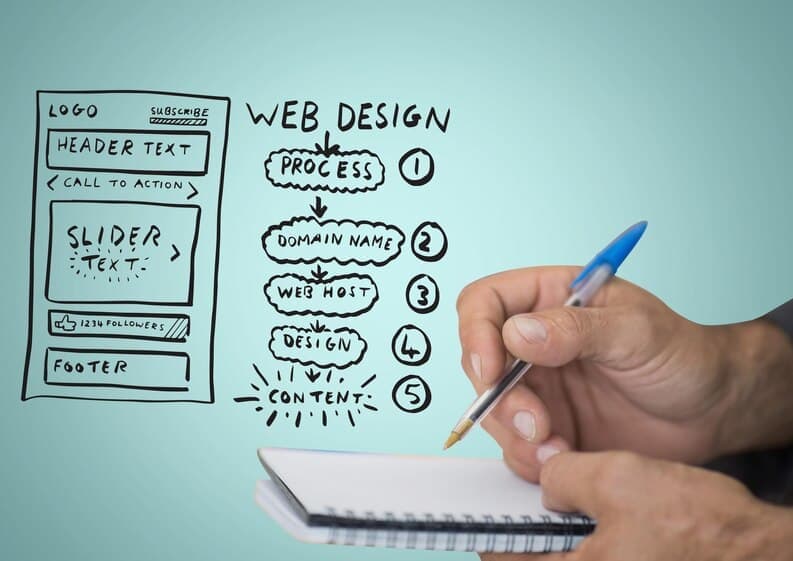 LOGO
SUBSCRIBE
HEADER TEXT
CALL TO ACTION
SLIDER
TEXT
1234 FOLLOWERS
FOOTER
WEB DESIGN
PROCESS 1
DOMAIN NAME 2
WEB HOST 3
DESIGN 4
CONTENT 5